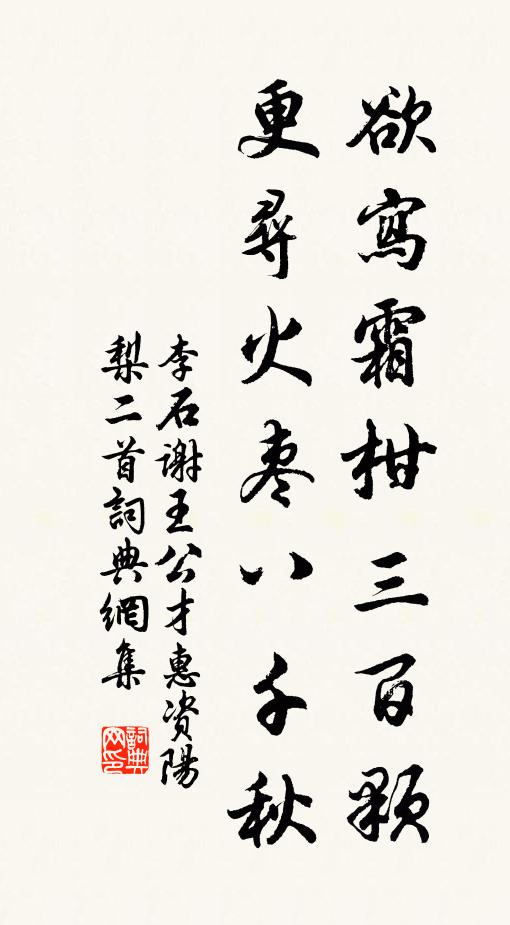 欲寫霜柑三百顆
更尋火枣八千秋
李石谢王公才惠资陽
梨二首詞典網集
詞典网印